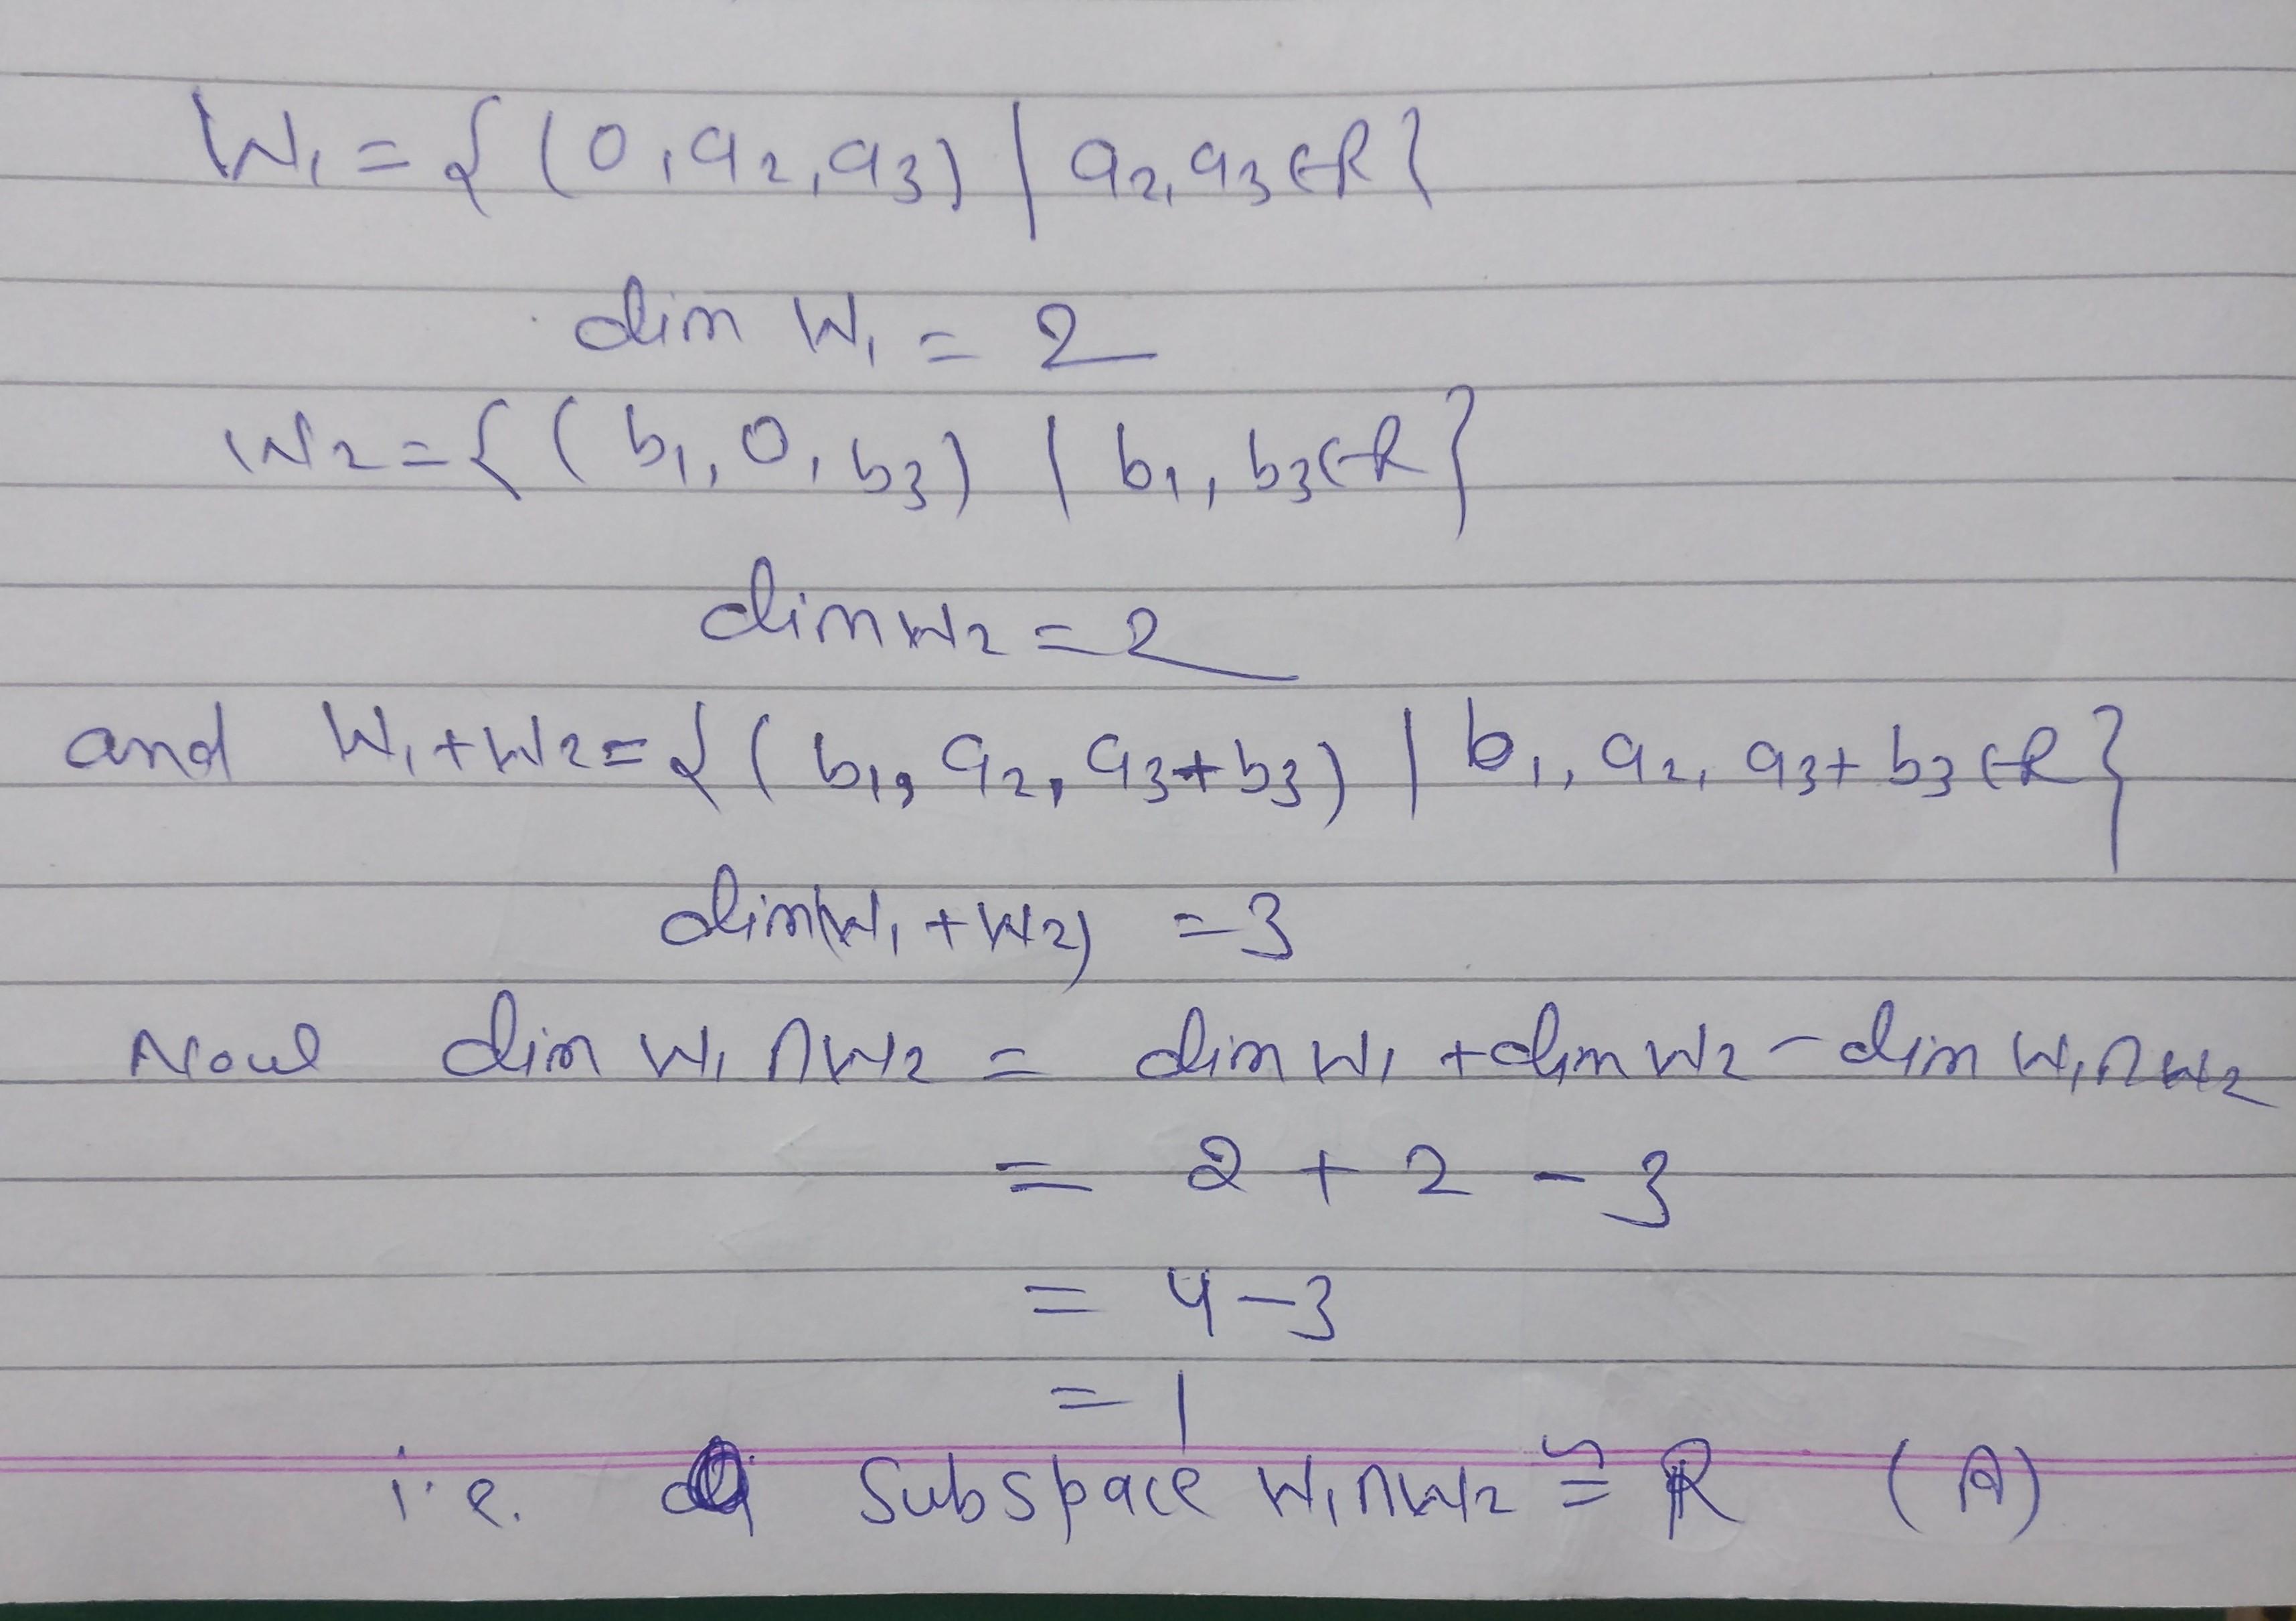 W₁ = {(0, a₂, a₃) | a₂, a₃ ∈ R}
dim W₁ = 2
W₂ = {(b₁, 0, b₃) | b₁, b₃ ∈ R}
dim W₂ = 2
and W₁ + W₂ = {(b₁, a₂, a₃ + b₃) | b₁, a₂, a₃ + b₃ ∈ R}
dim(W₁ + W₂) = 3
Now dim W₁ ∩ W₂ = dim W₁ + dim W₂ - dim W₁ ∩ W₂
= 2 + 2 - 3
= 4 - 3
= 1
i.e. Subspace W₁ ∩ W₂ ≅ R (A)